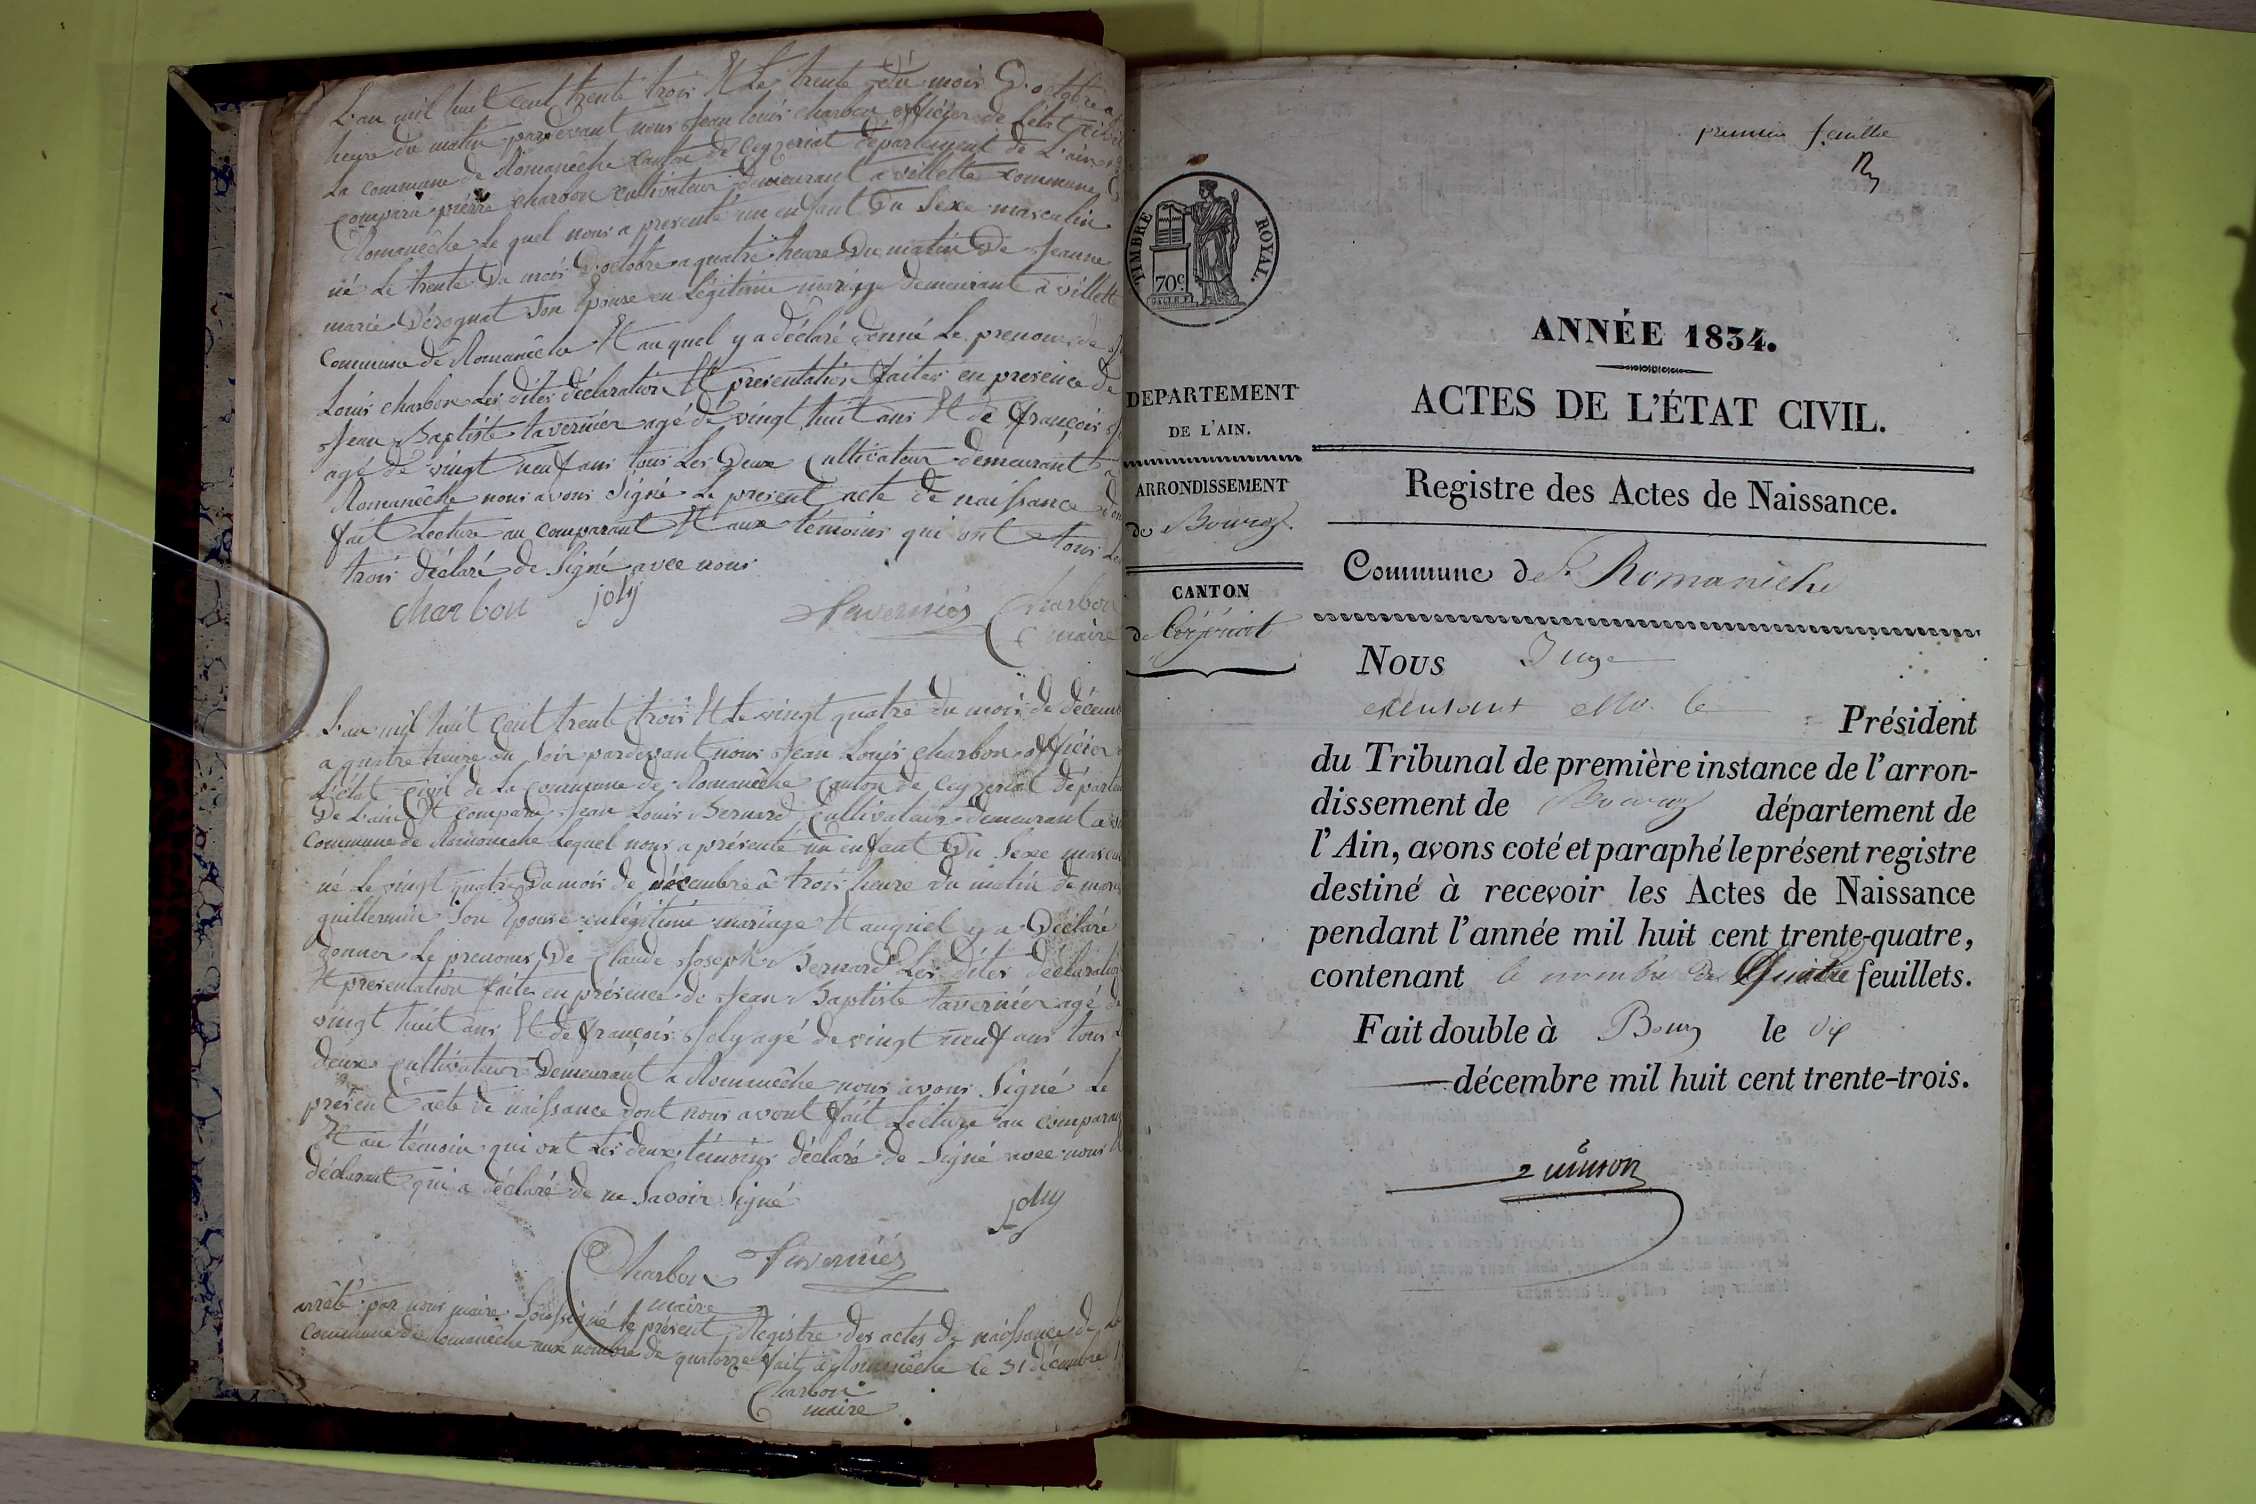 L'an mil huit cent trente trois Et Le trente du mois D'octobre a
heure du matin pardevant nous Jean Louis charbon officier de L'état civil
La commune de Romanêche canton de Ceyzeriat département de L'ain
comparu pierre charbon cultivateur demeurant a villette commune
Romanêche Le quel nous a presenté un enfant Du Sexe masculin
né Le trente Du mois D'octobre a quatre heure Du matin De Jeanne
marie Dérognat Son Epouse en Légitime mariage demeurant à villette
Commune de Romanêche Et au quel y a déclaré donné Le prenoms de
Louis charbon Les dites déclaration Et présentation faites en presence de
Jean Baptiste tavernier agé de vingt huit ans Et de françois
agé De vingt neuf ans tous Les Deux Cultivateur demeurant a
Romanêche nous avons Signé Le present acte de naissance
fait Lecture au comparant Et aux témoins qui ont tous Les
trois déclaré de Signé avec nous
charbon joly Taverniés Charbon
maire
L'an mil huit cent trente trois Et Le vingt quatre du mois de décem
a quatre heure du Soir pardevant nous Jean Louis charbon officier
L'état civil de La Commune de Romanêche canton de Ceyzeriat départem
De L'ain Et comparu Jean Louis Bernard Cultivateur demeurant a
Commune de Romaneche Lequel nous a présenté un enfant Du Sexe mascu
né Le vingt quatre Du mois de décembre à trois heure du matin de
guillermin Son Epouse en légitime mariage Et auquiel y a Déclaré
donner Le prenoms De Claude Joseph Bernard Les dites déclaration
Et presentation faites en présence de Jean Baptiste tavernier agé de
vingt huit ans Et de françois Joly agé de vingt neuf ans tous
deux cultivateur Demeurant a Romanêche nous avons Signé Le
présent acte de naissance dont nous avont fait Lecture au comparan
Et au témoin qui ont Les deux témoins déclaré de Signé avec nous
déclarant qui a déclaré de ne Savoir Signé
joly
Charbon Taverniés
maire
arrêté par nous maire Soussigné le présent Registre des actes de naissance de
Commune de Romanêche aux nombre de quatorze fait à Romanêche le 31 décembre
Charbon
maire
premier feuillet
TIMBRE ROYAL.
70c.
ANNÉE 1834.
ACTES DE L'ÉTAT CIVIL.
Registre des Actes de Naissance.
DEPARTEMENT
DE L'AIN.
ARRONDISSEMENT
de Bourg
CANTON
de Ceyzeriat
Commune de Romanèche
Nous Juge
Président
du Tribunal de première instance de l'arron-
dissement de Bourg département de
l'Ain, avons coté et paraphé le présent registre
destiné à recevoir les Actes de Naissance
pendant l'année mil huit cent trente-quatre,
contenant le nombre de Quatre feuillets.
Fait double à Bourg le dix
décembre mil huit cent trente-trois.